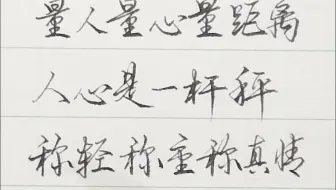 量人量心量距离
人心是一杆秤
称轻称重称真情